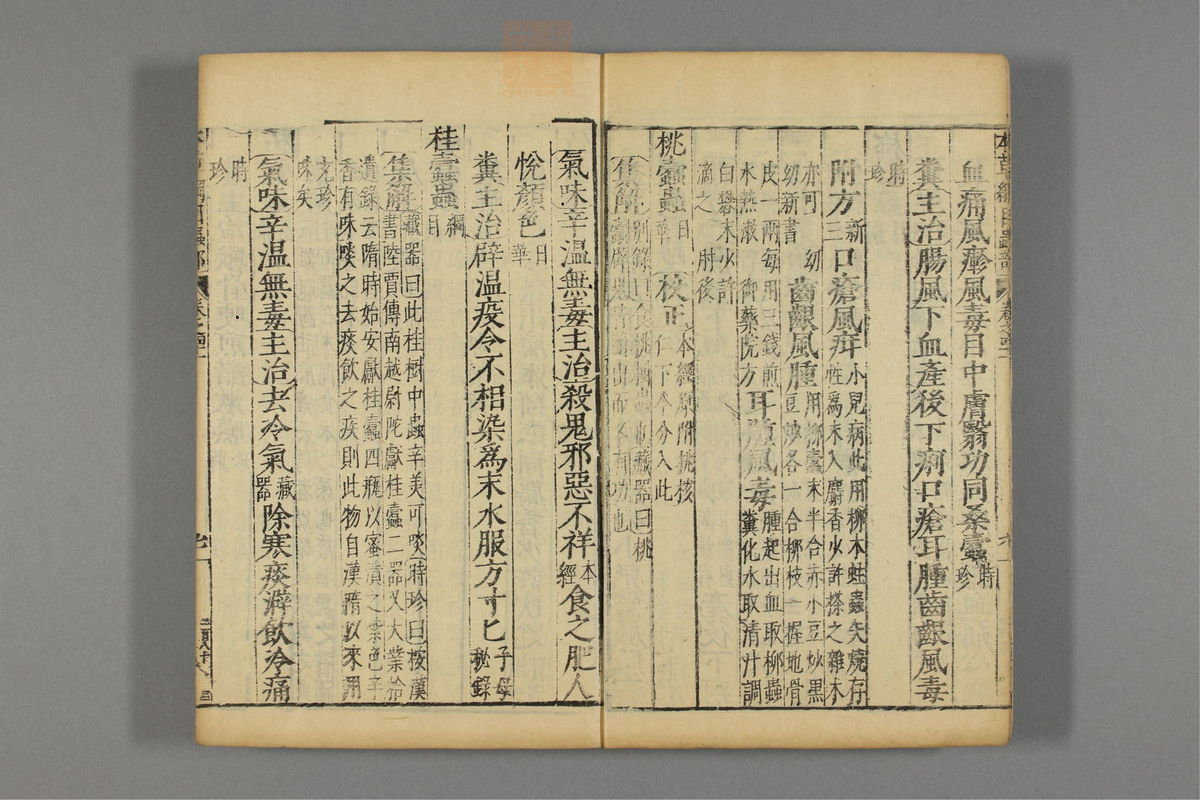 血痛風瘮風毒目中膚翳功同桑蠹時珍
糞主治腸風下血產後下痢口瘡耳腫齒齦風毒
時珍
附方新三口瘡風疳小兒病此用柳木蛀蟲矢燒存
性為末入麝香少許搽之雜木
亦可 幼幼新書 齒齦風腫用柳蠹末半合赤小豆炒黑
豆炒各一合柳枝一握地骨
皮一兩每用三錢煎
水熱漱 御藥院方 耳腫風毒腫起出血取柳蟲
糞化水取清汁調
白礬末少許
滴之 肘後
桃蠹蟲日華 校正本經原附桃核
仁下今分入此
集解別錄曰食桃樹蟲也藏器曰桃
氣味辛溫無毒主治殺鬼邪惡不祥本經食之肥人
悅顏色日華
糞主治辟溫疫令不相染為末水服方寸匕子母秘錄
桂蠹蟲綱目
集解藏器曰此桂樹中蟲辛美可啖時珍曰按漢
書陸賈傳南越尉陀獻桂蠹二器又大業拾
遺錄云隋時始安獻桂蠹四瓶以蜜漬之紫色辛
香有味啖之去痰飲之疾則此物自漢隋以來用
充珍
味矣
氣味辛溫無毒主治去冷氣藏器除寒痰澼飲冷痛
時珍